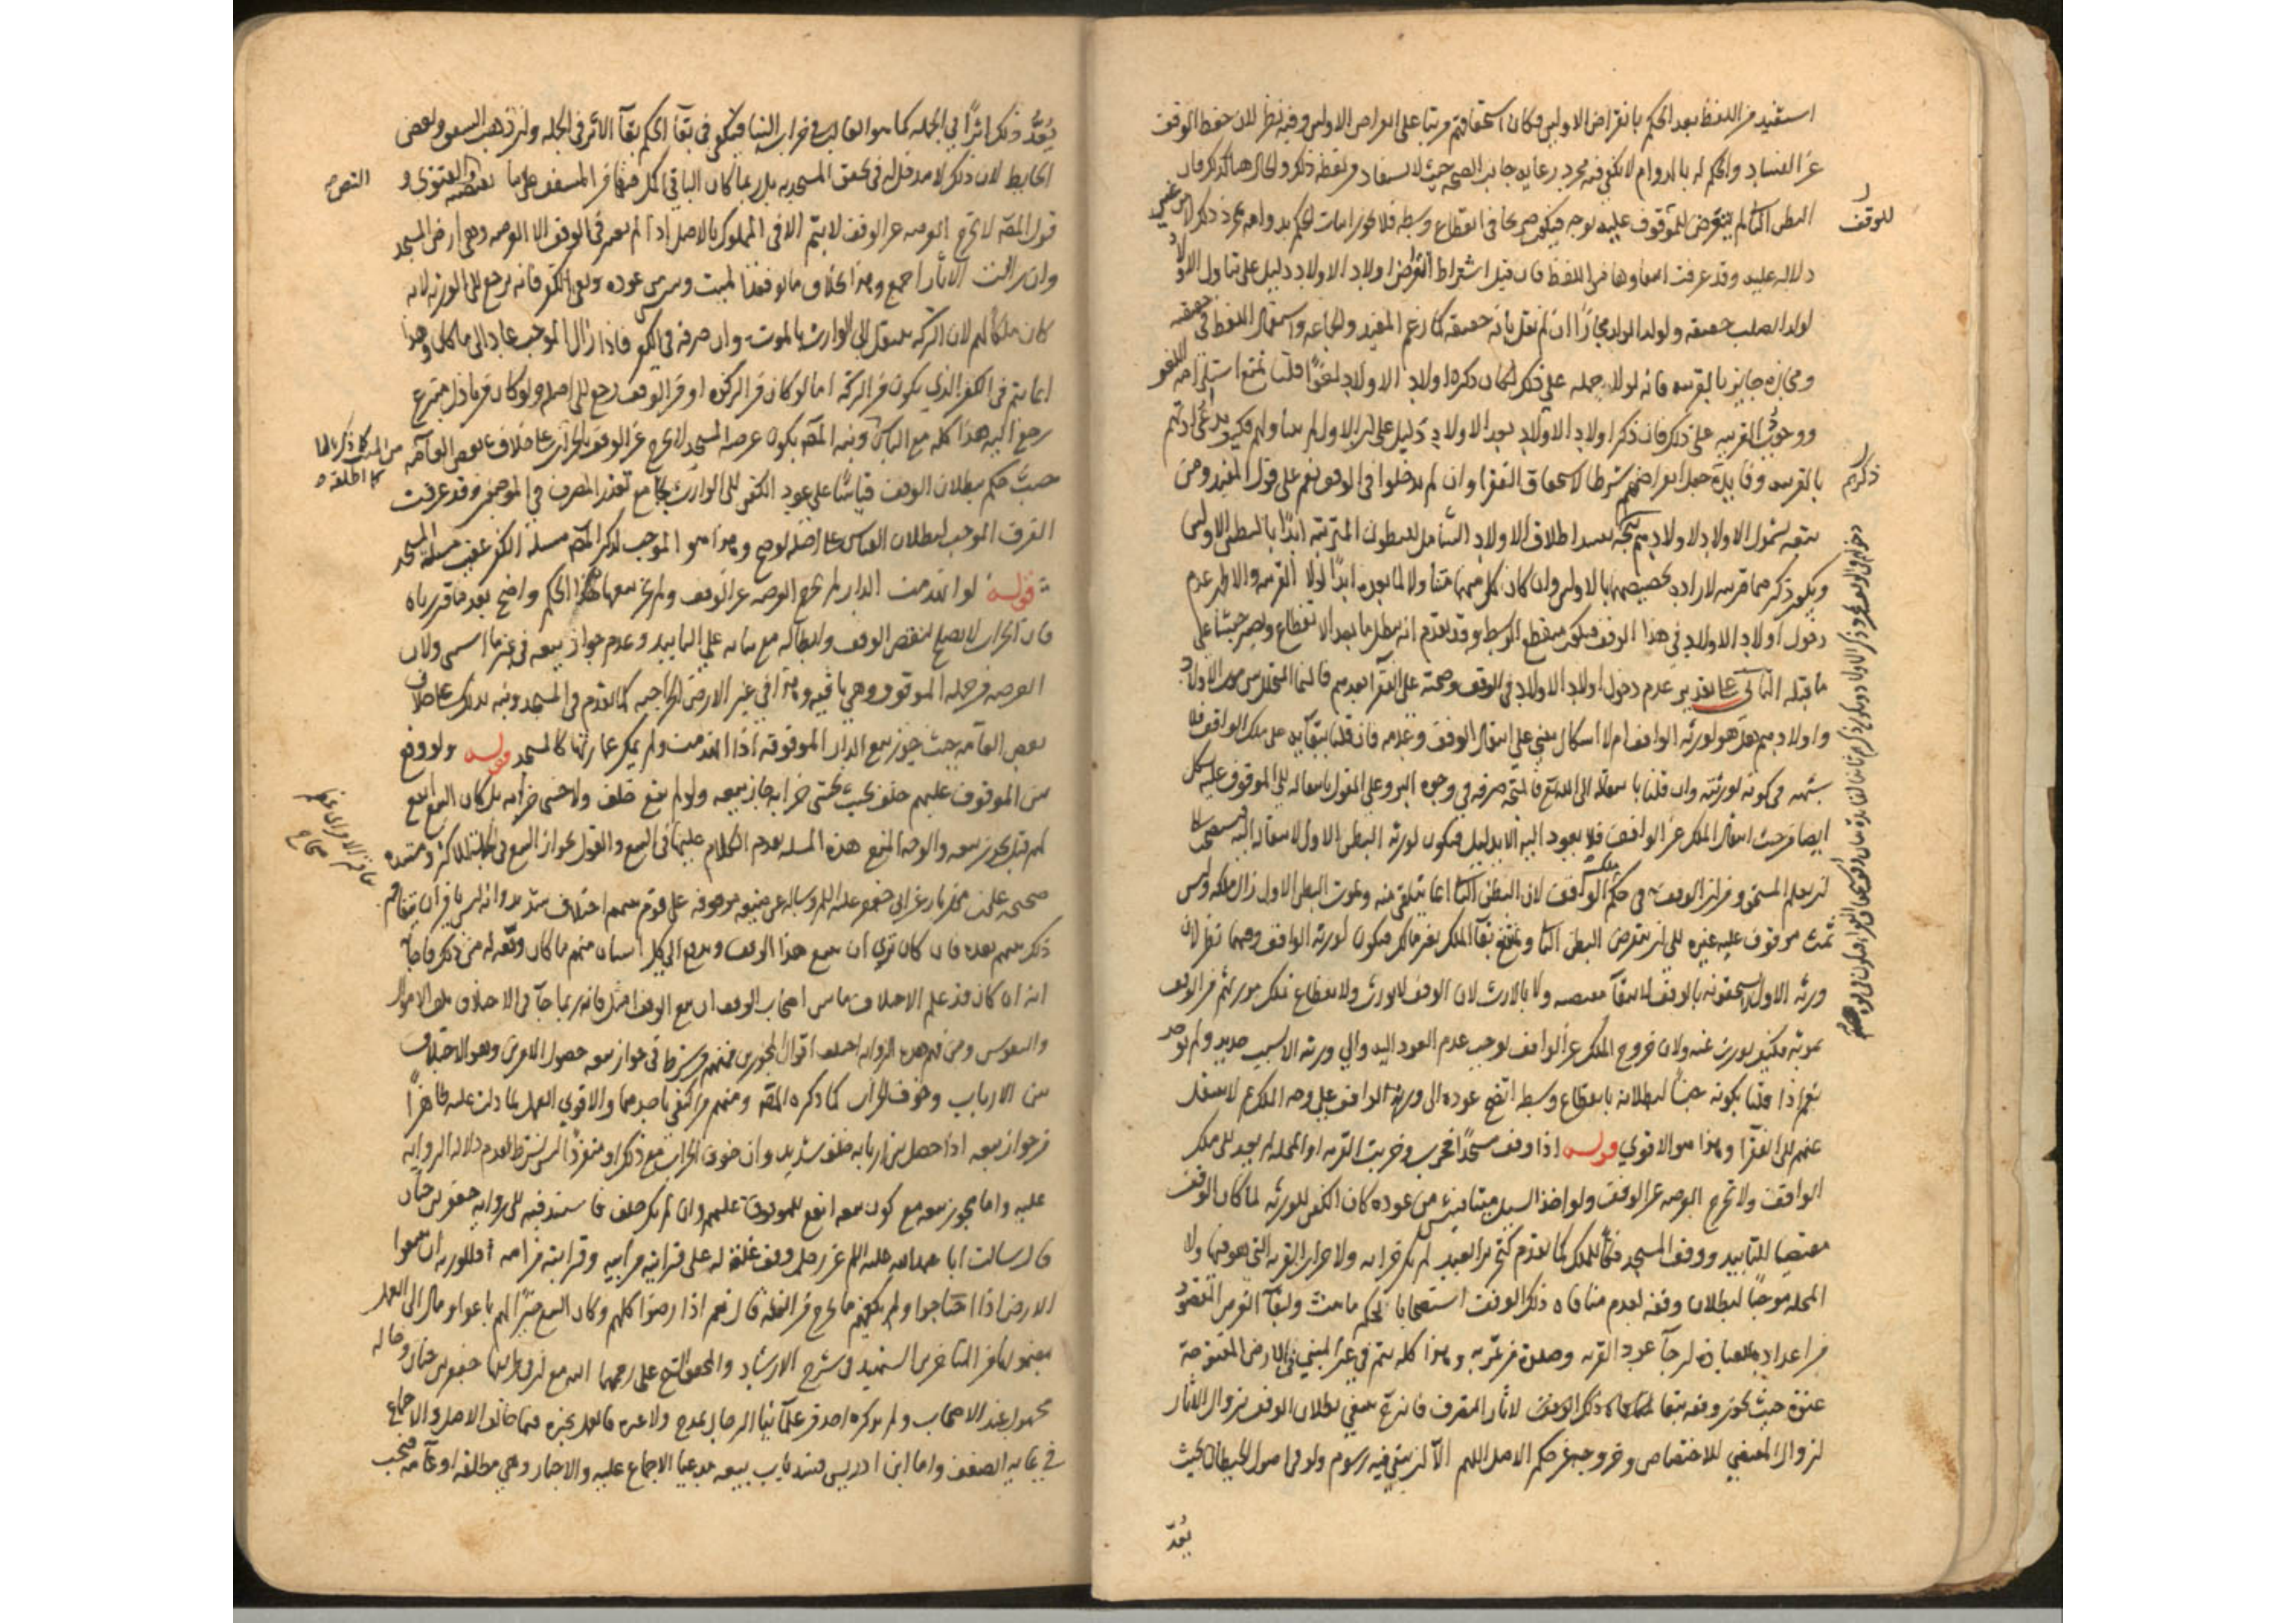 استفيد من اللفظ بعد الحكم بانقراض الاولين فكان استحقاقهم مرتبا على انقراض الاولين وفيه نظر لان حفظ الوقف
عن الفساد والحكم له بالدوام لا يكفي فيه مجرد رعاية جانب الصحة حيث لا يستفاد من لفظه ذلك والحال هنا كذلك فان
البطن الثاني لم يتعرض للموقوف عليه بوجه فيكون صريحا في انقطاع وسطه فلا يجوز اثبات الحكم بدوامه بمجرد ذلك من غير
للوقف
دلالة عليه وقد عرفت انتفاءها من اللفظ فان قيل اشتراط انقراض اولاد الاولاد دليل على تناول الاولاد
لولد الصلب حقيقة ولولد الولد مجازا ان لم نقل بانه حقيقة كما زعم المفيد والجماعة واستعمال اللفظ في حقيقته
ومجازه جايز بالقرينة فانه لولا حمله على ذلك لكان ذكره اولاد الاولاد لغوا قلنا نمنع استلزامه اللغو
ووجود القرينة على ذلك فان ذكر اولاد الاولاد بعد الاولاد دليل على ان الاول لم يتناولهم فكيف يدعى ارادتهم
بالقرينة وفايدة جعل انقراضهم شرطا لاستحقاق الفقراء وان لم يدخلوا في الوقف نعم على قول المفيد ومن
ذكرهم
تبعه بشمول الاولاد لاولادهم يتجه تقييد اطلاق الاولاد الشامل للبطون المترتبة ابدا بالبطن الاولين
ويكون ذكرهما قرينة لارادة تخصيصها بالاولين وان كان كل منهما متناولا لما بعده ابدا لولا القرينة والاظهر عدم
دخول اولاد الاولاد في هذا الوقف فيكون منقطع الوسط وقد تقدم انه يبطل ما بعد الانقطاع ويصير حبسا على
ما قبله الثاني على تقدير عدم دخول اولاد الاولاد في الوقف وصحته على الفقراء بعدهم فالنماء المتخلل بين موت الاولاد
واولادهم هل هو لورثة الواقف ام لا اشكال مبني على انتقال الوقف وعدمه فان قلنا ببقائه على ملك الواقف فلا
شبهة في كونه لورثته وان قلنا بانتقاله الى الله تع فالمتجه صرفه في وجوه البر وعلى القول بانتقاله الى الموقوف عليه يشكل
ايضا من حيث انتقال الملك عن الواقف فلا يعود اليه الا بدليل فيكون لورثة البطن الاول لانتقاله اليه فيستصحب
لم يعلم المستحق ومن ان الوقف في حكم ملك الواقف لان البطن الثاني انما يتلقى منه وبموت البطن الاول زال ملكه وليس
ثمت موقوف عليه غيره الى ان ينقرض البطن الثاني ويمتنع بقاء الملك بغير مالك فيكون لورثة الواقف وفيهما نظر لان
ورثة الاول لا يستحقونه بالوقف لانتفاء مقتضيه ولا بالارث لان الوقف لا يورث ولانقطاع تملك مورثهم من الوقف
بموته فكيف يورث عنه ولان خروج الملك عن الواقف يوجب عدم العود اليه والى ورثته الا بسبب جديد ولم يوجد
نعم اذا قلنا بكونه حبسا لبطلانه بانقطاع وسطه اتضح عوده الى ورثة الواقف على وجه الملك ثم لا ينتقل
عنهم الى الفقراء وهذا هو الاقوى قوله اذا وقف مسجدا فخرب وخربت القرية او المحلة لم يعد الى ملك
الواقف ولا تخرج العرصة عن الوقف ولو اخذ السيل ميتا فيئس من عوده كان الكفن للورثة لما كان الوقف
مقتضيا للتابيد ووقف المسجد فكا للملك كما تقدم كتحرير العبد لم يكن خرابه ولا خراب القرية التي هو فيها ولا
المحلة موجبا لبطلان وقفه لعدم منافاة ذلك الوقف استصحابا لحكم ما ثبت ولبقاء الغرض المقصود
من اعداده للعبادة لرجاء عود القرية وصلوة من يمر به وهذا كله يتم في غير المبني في الارض المفتوحة
عنوة حيث يجوز وقفه تبعا لآثار المتصرف فانه حينئذ ينبغي بطلان الوقف بزوال الآثار
لزوال المقتضي للاختصاص وخروجه عن حكم الاصل اللهم الا ان يبقى فيه رسوم ولو في اصول الحيطان بحيث
يعد
يعد ذلك اثرا في الجملة كما هو الغالب في خراب البناء فيكفي في بقاء الحكم بقاء الاثر في الجملة وان ذهب السقف وبعض
الحايط لان ذلك لا مدخل له في تحقق المسجدية بل ربما كان الباقي اكمل فيها من المسقف على ما يقتضيه الفتوى و
النص
قول المصه لا تخرج العرصة عن الوقف لا يتم الا في المملوك بالاصل اذ لم يعتبر في الوقف الا العرصة وهي ارض المسجد
وان زالت الآثار اجمع وهذا بخلاف ما لو فقد الميت ويئس من عوده وبقي الكفن فانه يرجع الى الورثة لانه
كان ملكا لهم لان التركة تنتقل الى الوارث بالموت وان صرفه في الكفن فاذا زال الموجب عاد الى ما كان وهذا
انما يتم في الكفن الذي يكون من التركة اما لو كان من الزكوة او من الوقف رجع الى اصله ولو كان من باذل متبرع
رجع اليه هذا كله مع اليأس ونبه المصه بكون عرصة المسجد لا تخرج عن الوقف بالخراب على خلاف بعض العامة
حيث حكم ببطلان الوقف قياسا على عود الكفن الى الوارث بجامع تعذر المصرف في الموضعين وقد عرفت
الفرق الموجب لبطلان القياس على اصله الواضح وهذا هو الموجب لذكر المصه مسئلة الكفن عقيب مسئلة المسجد
قوله لو انهدمت الدار لم تخرج العرصة عن الوقف ولم يجز بيعها هذا الحكم واضح بعد ما قررناه
فان الخراب لا يصلح لنقض الوقف وابطاله مع بنائه على التابيد وعدم جواز بيعه في غير ما استثني ولان
العرصة من جملة الموقوف وهي باقية وهذا في غير الارض الخراجية كما تقدم في المسجد ونبه بذلك على خلاف
بعض العامة حيث جوز بيع الدار الموقوفة اذا انهدمت ولم يمكن عمارتها كالمسجد قوله ولو وقع
بين الموقوف عليهم خلف بحيث يخشى خرابه جاز بيعه ولو لم يقع خلف ولا خشي خرابه بل كان البيع انفع
لهم قيل يجوز بيعه والوجه المنع هذه المسئلة تقدم الكلام عليها في البيع والقول بجواز البيع في الجملة للاكثر ومستنده
صحيحة علي بن مهزيار عن ابي جعفر عليه السلم وساله عن ضيعة موقوفة على قوم بينهم اختلاف شديد وانه ليس يامن ان يتفاقم
ذلك بينهم بعده فان كان ترى ان يبيع هذا الوقف ويدفع الى كل انسان منهم ما كان وقف له من ذلك فاجاب
انه ان كان قد علم الاختلاف ما بين اصحاب الوقف ان بيع الوقف امثل فانه ربما جاء في الاختلاف تلف الاموال
والنفوس ومن فهم هذه الرواية اختلف اقوال المجوزين فمنهم من شرط في جواز بيعه حصول الامرين وهو الاختلاف
بين الارباب وخوف الخراب كما ذكره المصه ومنهم من اكتفى باحدهما والاقوى العمل بما دلت عليه ظاهرا
من جواز بيعه اذا حصل بين اربابه خلف شديد وان خوف الخراب مع ذلك او منفردا ليس بشرط لعدم دلالة الرواية
عليه واما تجويز بيعه مع كون بيعه انفع للموقوف عليهم وان لم يكن خلف فاستند فيه الى رواية جعفر بن حنان
قال سالت ابا عبد الله عليه السلم عن رجل وقف غلة له على قرابته من ابيه وقرابته من امه افللورثة ان يبيعوا
الارض اذا احتاجوا ولم يكفهم ما يخرج من الغلة قال نعم اذا رضوا كلهم وكان البيع خيرا لهم باعوا ومال الى العمل
بمضمونها من المتاخرين الشهيد في شرح الارشاد والمحقق الشيخ علي رحمهما الله مع ان في طريقها جعفر بن حنان وحاله
مجهول عند الاصحاب ولم يذكره احد من علمائنا الرجال بمدح ولا غيره فالعمل بخبره فيما خالف الاصل والاجماع
في غاية الضعف واما ابن ادريس فسد باب بيعه مدعيا الاجماع عليه والاخبار وهي مطلقة او عامة فيجب